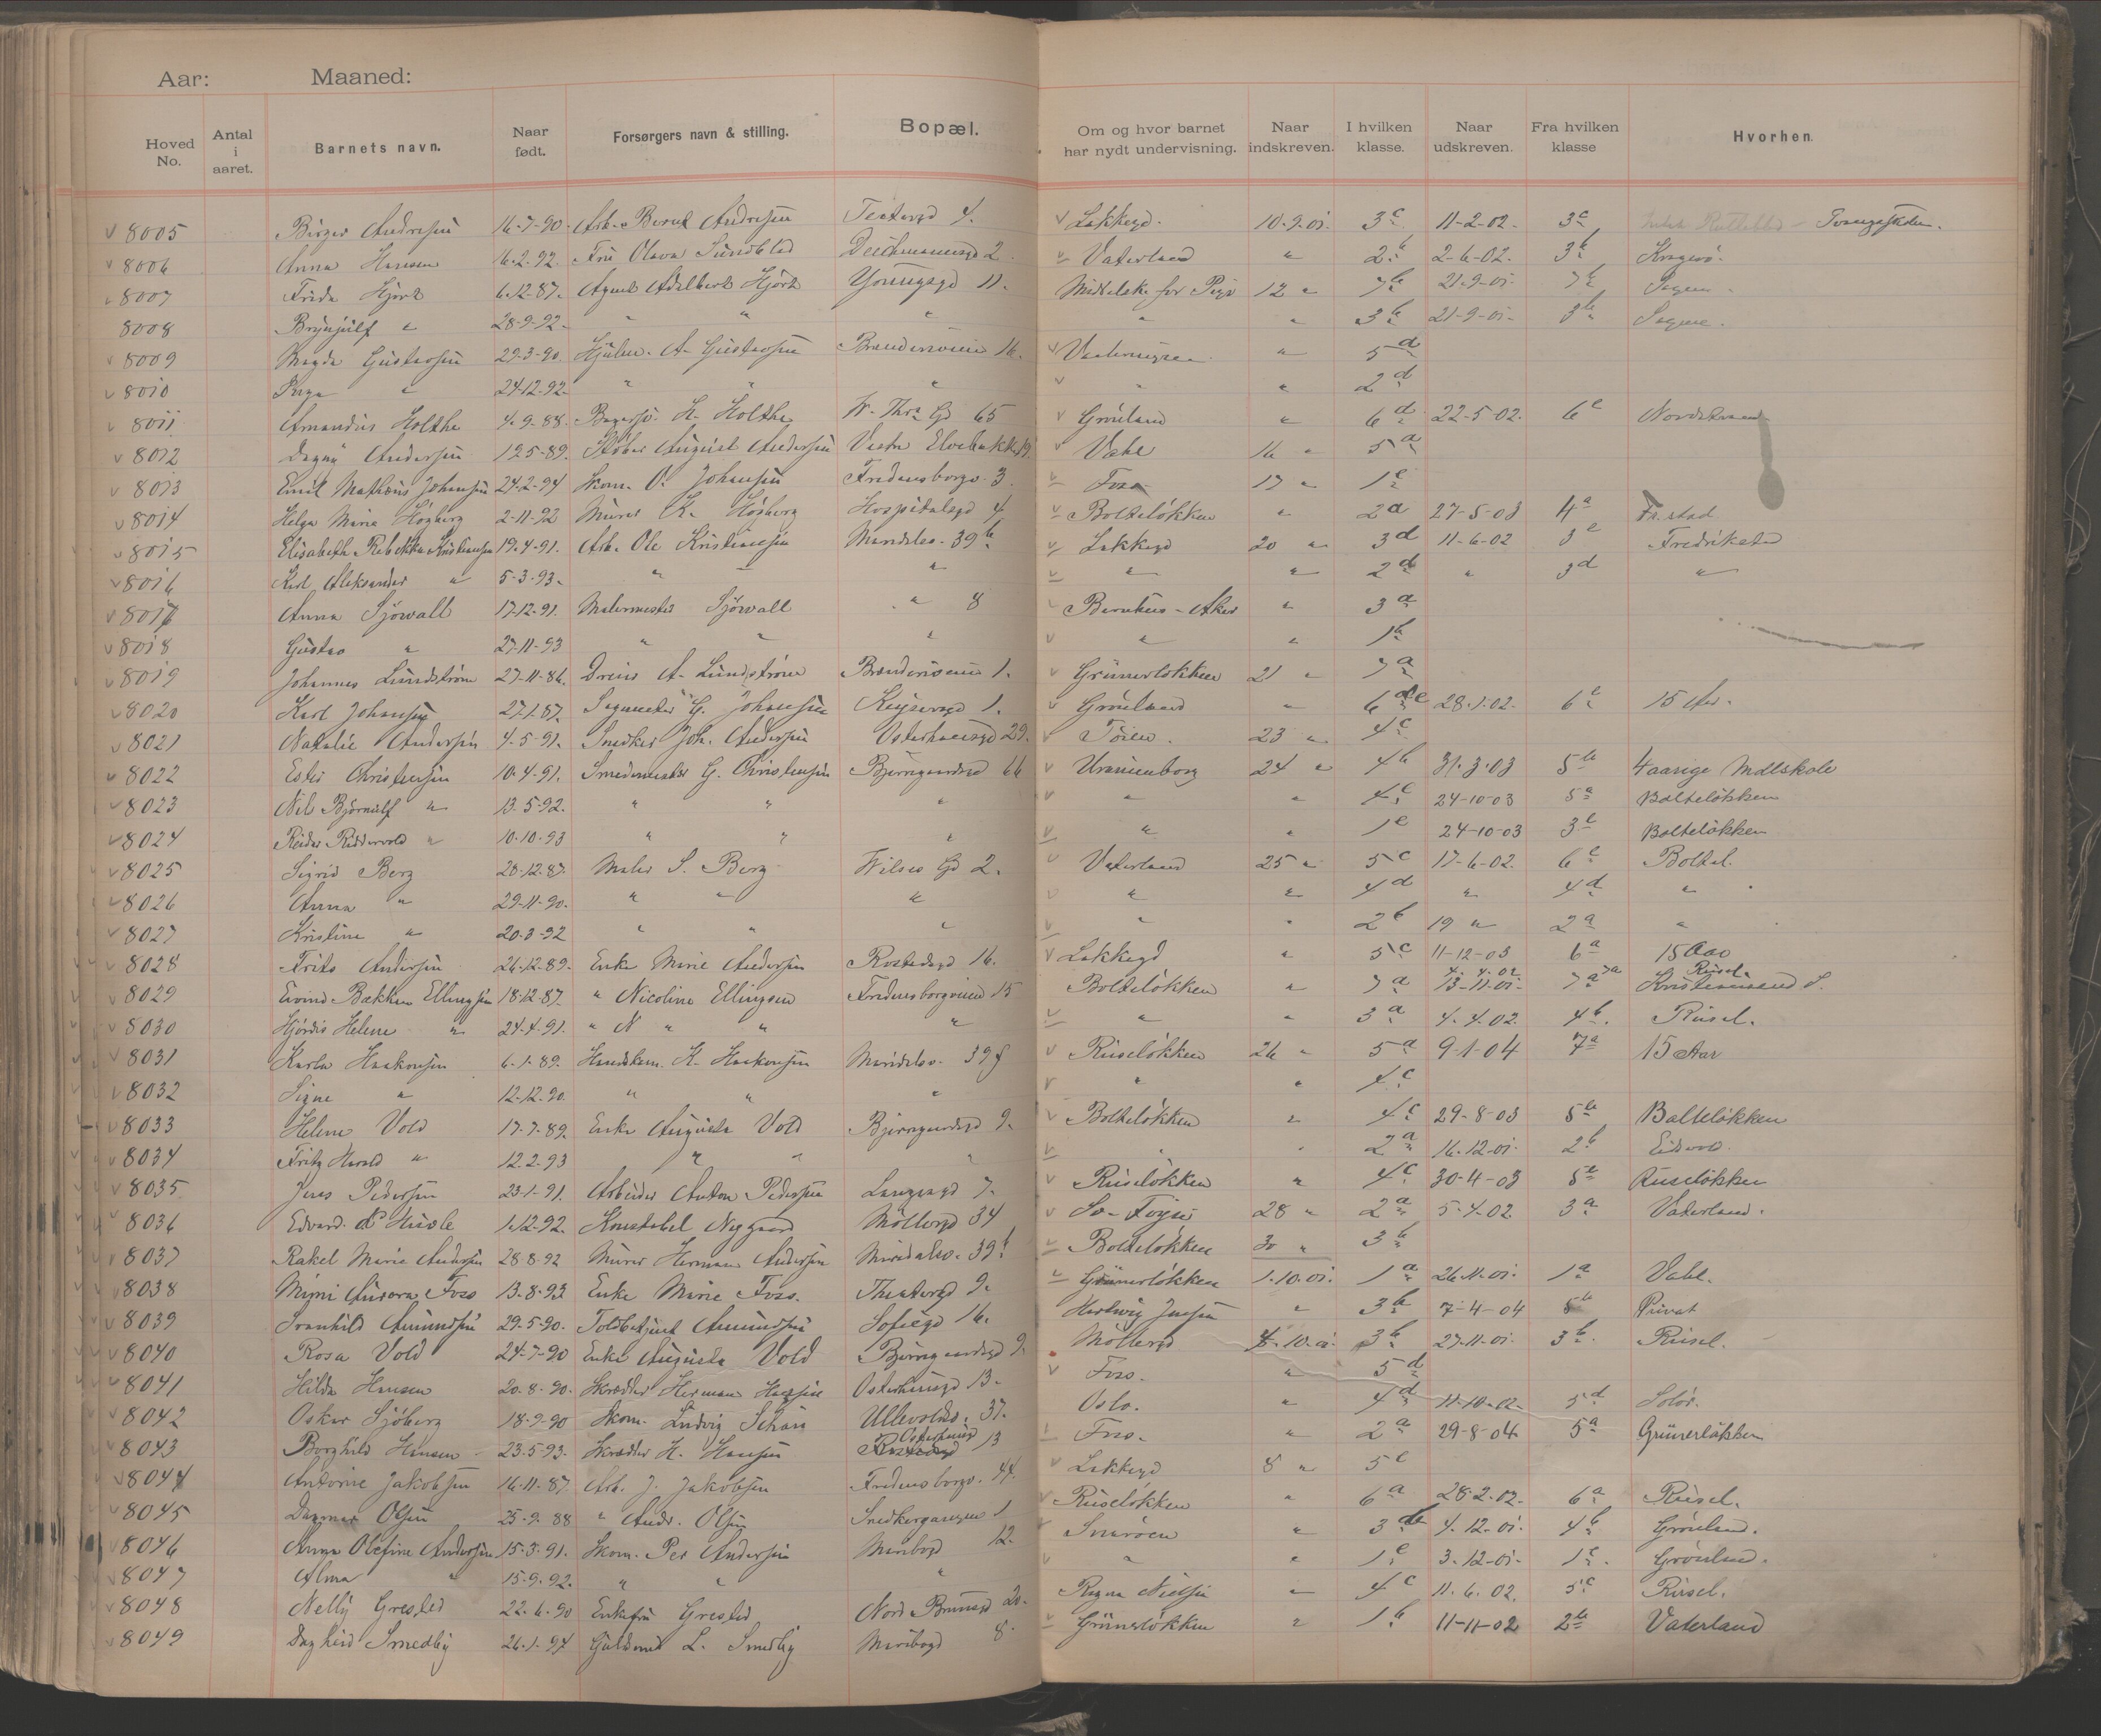 Aar: Maaned:
Hoved No. Antal i aaret. Barnets navn. Naar født. Forsørgers navn & stilling. Bopæl. Om og hvor barnet har nydt undervisning. Naar indskreven. I hvilken klasse. Naar udskreven. Fra hvilken klasse Hvorhen.
8005 Birger Andresen 16-7-90 Arb. Bernt Andresen Teatergd 4. Lakkegd. 10-9-01. 3c 11-2-02. 3c Tvangsskolen.
8006 Anna Hansen 16-2-92. Fru Olava Sundblad Deichmannsgd 2 Vaterland " 2b 2-6-02. 3b Kragerö.
8007 Frida Hjort 6-12-87. Agent Adelbert Hjort Youngsgd 11. Middelsk. for Piger 12 " 7b 21-9-01. 7b Sagene.
8008 Brynjulf " 28-9-92. " " " " " 3b 21-9-01. 3b Sagene.
8009 Magda Gustavsen 29-3-90. A. Gustavsen 16. " 5d
8010 " 24-12-92. " " " " " 2d
8011 Amandus Holthe 4-9-88. H. Holthe W. Thrs Gd 65 Grönland " 6d 22-5-02. 6e Nordstrand
8012 Dagny Andersen 12-5-89. August Andersen Vestre Elvebakke 19. Vahl 16 " 5a
8013 Emil Mathæus Johansen 24-2-94 Skom. O. Johansen Fredensborgv. 3. Foss 17 " 1c
8014 Helga Marie Högberg 2-11-92 Murer K. Högberg Hospitalsgd 4 Bolteløkken " 2a 27-5-03 4a Fr.stad
8015 Elisabeth Rebekka Kristiansen 19-4-91. Arb. Ole Kristiansen Maridalsv. 39b Lakkegd 20 " 3d 11-6-02 3e Fredrikstad
8016 Karl Aleksander " 5-3-93. " " " " 2d " 3d "
8017 Anna Sjöwall 17-12-91. Malermester Sjöwall " 8 - Aker " 3a
8018 Gustav " 27-11-93 " " " " " 1b
8019 Johannes Lundström 27-11-86. Dreier A. Lundström 1. Grünerløkken 21 " 7a
8020 Karl Johansen 27-1-87. G. Johansen Keysersgd 1. Grönland " 6e 28-1-02. 6e 15 Aar.
8021 Natalie Andersen 4-5-91. Snedker Joh. Andersen Osterhausgd 29. Töien. 23 " 4c
8022 Ester Christensen 10-4-91. Smedemester G. Christensen Bjerregaardsgd 66 Uranienborg 24 " 4b 31-3-03 5b 4 aarige Mdlskole
8023 Nil Björnulf " 13-5-92. " " " " " 4c 24-10-03 5a Bolteløkken
8024 Reidar Riddervold " 10-10-93 " " " " " 1e 24-10-03 3e Bolteløkken
8025 Sigrid Berg 28-12-87. Maler S. Berg Wilses Gd 2. Vaterland 25 " 5c 17-6-02. 6c Boltel.
8026 Anna " 29-11-90. " " " " " 4d " 4d "
8027 Kristine " 20-3-92 " " " " " 2b 19 " 2a "
8028 Frits Andersen 26-12-89. Enke Marie Andersen Rostedsgd 16. Lakkegd " 5c 11-12-03 6a 15 Aar
8029 Eivind Bakken Ellingsen 18-12-87. " Nicoline Ellingsen Fredensborgveien 15 Bolteløkken " 7a 13-11-01. 4-4-02 7a 7a Kristiansand S. Rusel.
8030 Hjördis Helene " 24-4-91. " N " " " " " 3a 4-4-02. 4b. Rusel.
8031 Karla Haakonsen 6-1-89. Handskem. K. Haakonsen Maridalsv. 39f Ruseløkken 26 " 5a 9-1-04 7a 15 Aar
8032 Signe " 12-12-90. " " " " " 4c
8033 Helene Vold 17-7-89. Enke Augusta Vold Bjerregaardsgd 9. Bolteløkken " 4c 29-8-03 5b Bolteløkken
8034 Fritz Harald " 12-2-93 " " " " " 2a 16-12-01. 2b Eidsvold.
8035 Jens Pedersen 23-1-91. Arbeider Anton Pedersen Langesgd 7. Ruseløkken " 4c 30-4-03 5e Ruseløkken
8036 Edvard 1-12-92. Konstabel Nygaard Möllergd 34 28 " 2a 5-4-02. 3a Vaterland.
8037 Rakel Marie Andersen 28-8-92 Murer Herman Andersen Maridalsv. 39f Bolteløkken 30 " 3b
8038 Mimi Aurora Foss 13-8-93 Enke Marie Foss. Theatergd 9. Grünerløkken 1-10-01. 1a 26-11-01. 1a Vahl.
8039 Svanhild Amundsen 29-5-90. Toldbetjent Amundsen Sofiegd 16. " 3b 7-4-04 5b Privat
8040 Rosa Vold 24-7-90 Enke Augusta Vold Bjerregaardsgd 9. Möllergd 4-10-01. 3b 27-11-01. 3b. Rusel.
8041 Hilda Hansen 20-8-90. Skrædder Herman Hansen Osterhausgd 13. Foss. " 5d
8042 Oskar Sjöberg 18-9-90 Skom. Ludvig Ullevoldsv. 37. Oslo. " 4d 11-10-02. 5d Solör.
8043 Borghild Hansen 23-5-93. Skrædder H. Hansen Osterhausgd 13 Foss. " 2a 29-8-04 5a Grünerløkken
8044 Antonie Jakobsen 16-11-87. Arb. J. Jakobsen Fredensborgv. 44. Lakkegd 8 " 5e
8045 Dagmar Olsen 25-9-88 " Andr. Olsen Snedkergangen 1 Ruseløkken " 6a 28-2-02. 6a Rusel.
8046 Anna Olefine Andersen 15-3-91. Skom. Per Andersen Maribogd 12. Snarøen " 3 4-12-01. 4b Grönland.
8047 Alma " 15-9-92. " " " " " 1e 3-12-01. 1e. Grönland.
8048 Nelly Grested 22-6-90 Enkefru Grested Nord Brunsgd 20. Ragna Nielsen " 4c 11-6-02. 5c Rusel.
8049 Daghild Smedby 26-1-94 Guldsmed L. Smedby Maribogd 8. Grünerløkken " 1b 11-11-02 2b Vaterland